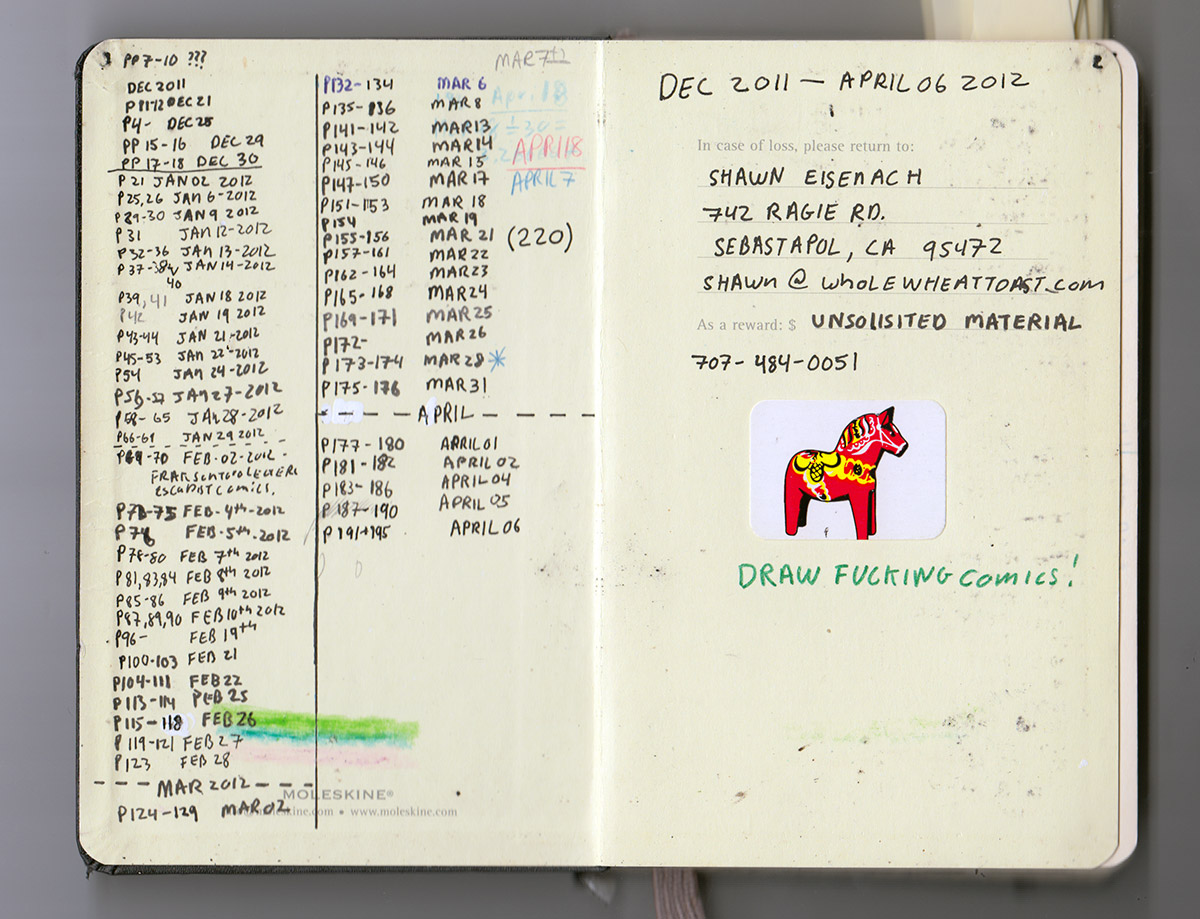 PP7-10 ???
DEC 2011
DEC 21
P4- DEC 25
PP 15-16 DEC 29
PP 17-18 DEC 30
P 21 JAN 02 2012
P25,26 JAN 6-2012
P29-30 JAN 9 2012
P31 JAN 12-2012
P32-36 JAN 13-2012
P37-38 JAN 14-2012
40
P39,41 JAN 18 2012
P42 JAN 19 2012
P43-44 JAN 21-2012
P45-53 JAN 22-2012
P54 JAN 24-2012
P56-57 JAN 27-2012
P58-65 JAN 28-2012
P66-68 JAN 29 2012
P69-70 FEB-02-2012-
COMICS.
P73-75 FEB-4th-2012
P76 FEB-5th-2012
P78-80 FEB 7th 2012
P81,83,84 FEB 8th 2012
P85-86 FEB 9th 2012
P87,89,90 FEB 10th 2012
P96- FEB 19th
P100-103 FEB 21
P104-111 FEB 22
P113-114 FEB 25
P115-118 FEB 26
P119-121 FEB 27
P123 FEB 28
MAR 2012
P124-129 MAR 02
MOLESKINE®
moleskine.com • www.moleskine.com
MAR 7th
P132-134 MAR 6
P135-136 MAR 8
Apr. 18
P141-142 MAR 13
P143-144 MAR 14
APR 18
P145-146 MAR 15
P147-150 MAR 17
APRIL 7
P151-153 MAR 18
P154 MAR 19
P155-156 MAR 21
(220)
P157-161 MAR 22
P162-164 MAR 23
P165-168 MAR 24
P169-171 MAR 25
P172- MAR 26
P173-174 MAR 28*
P175-176 MAR 31
APRIL
P177-180 APRIL 01
P181-182 APRIL 02
P183-186 APRIL 04
P187-190 APRIL 05
P191-195 APRIL 06
2
DEC 2011 — APRIL 06 2012
In case of loss, please return to:
SHAWN EISENACH
742 RAGLE RD.
SEBASTAPOL, CA 95472
SHAWN @ WHOLEWHEATTOAST.COM
As a reward: $ UNSOLISITED MATERIAL
707-484-0051
DRAW FUCKING COMICS!